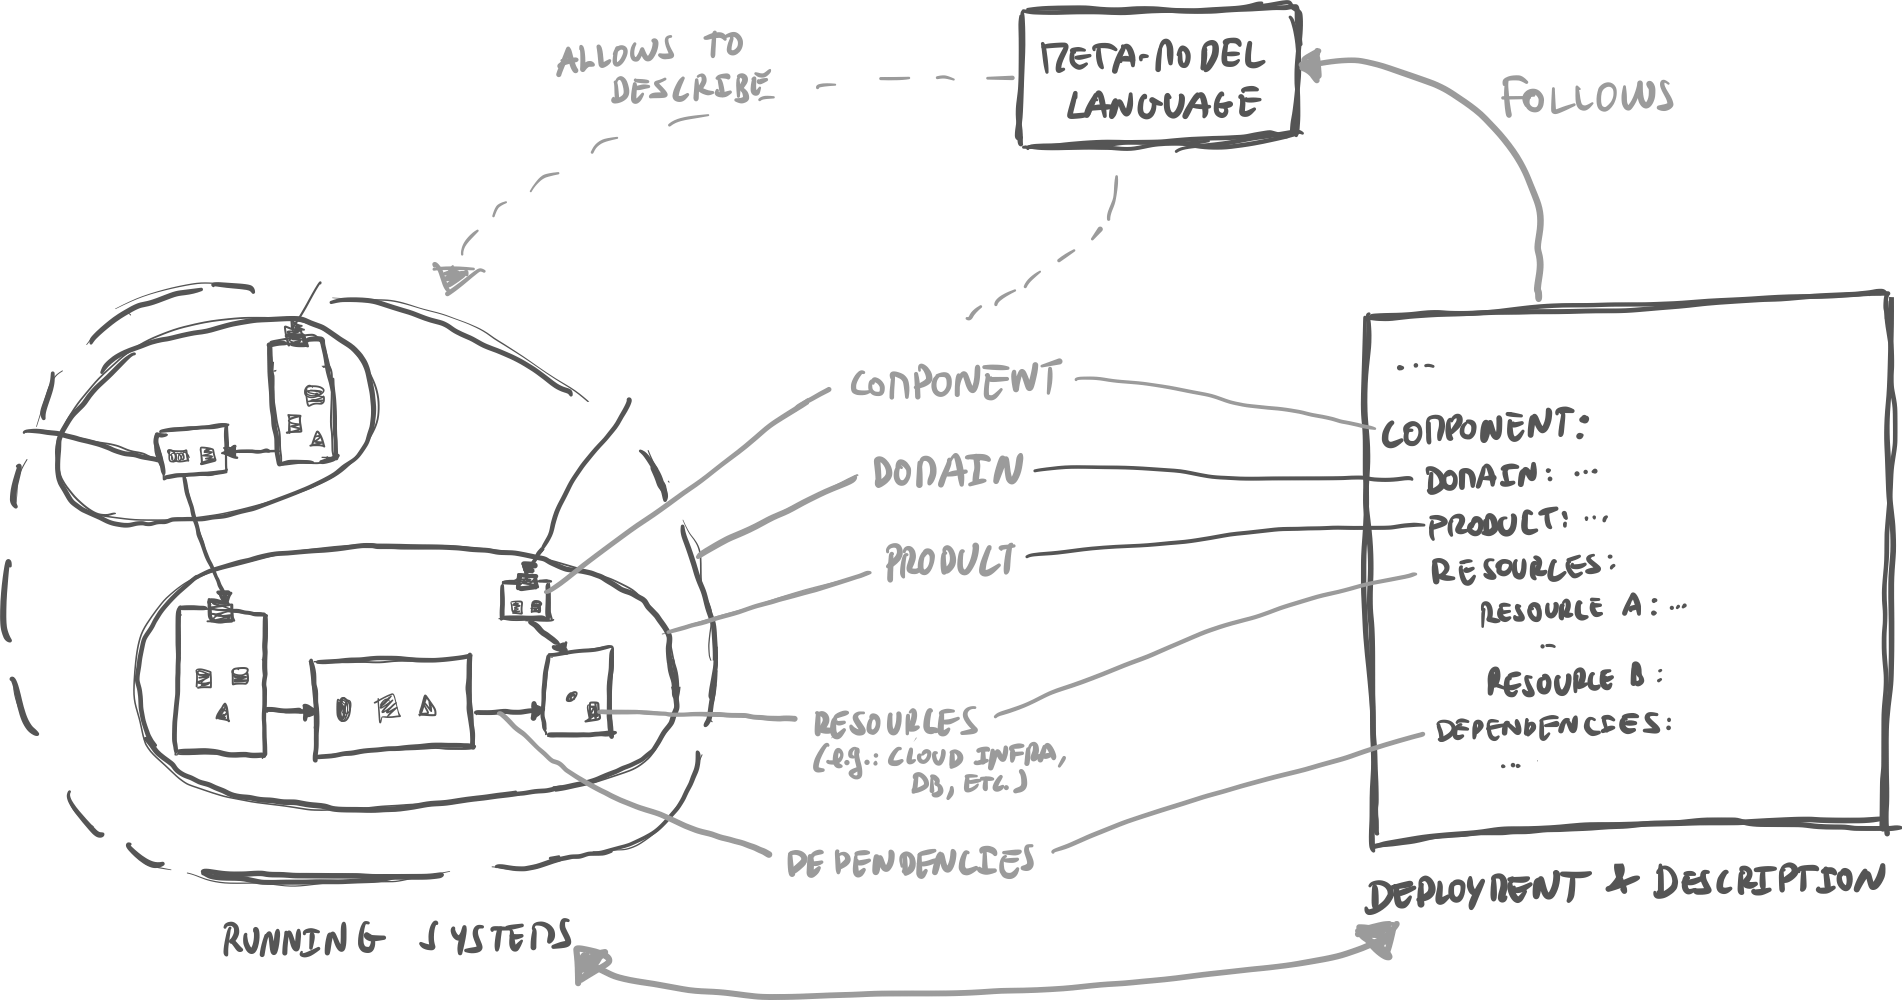 ALLOWS TO
DESCRIBE
META-MODEL
LANGUAGE
FOLLOWS
COMPONENT
DOMAIN
PRODUCT
RESOURCES
(e.g.: CLOUD INFRA,
DB, ETC.)
DEPENDENCIES
...
COMPONENT:
DOMAIN: ...
PRODUCT: ...
RESOURCES:
RESOURCE A: ...
..
RESOURCE B:
DEPENDENCIES:
...
RUNNING SYSTEMS
DEPLOYMENT & DESCRIPTION